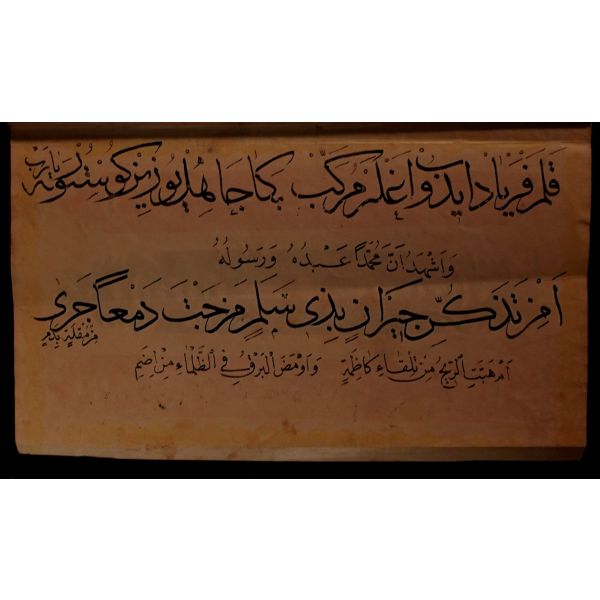 قلم فرياد ايدوب اغلر مركب بكا جاهل يوزين كوسترمه يا رب
وَاَشْهَدُ اَنَّ مُحَمَّدًا عَبْدُهُ وَرَسُولُهُ
اَمِنْ تَذَكُّرِ جِيرَانٍ بِذِى سَلَمٍ مَزَجْتَ دَمْعًا جَرٰى مِنْ مُقْلَةٍ بِدَمِ
اَمْ هَبَّتِ الرِّيحُ مِنْ تِلْقَاءِ كَاظِمَةٍ وَاَوْمَضَ الْبَرْقُ فِى الظَّلْمَاءِ مِنْ اِضَمِ